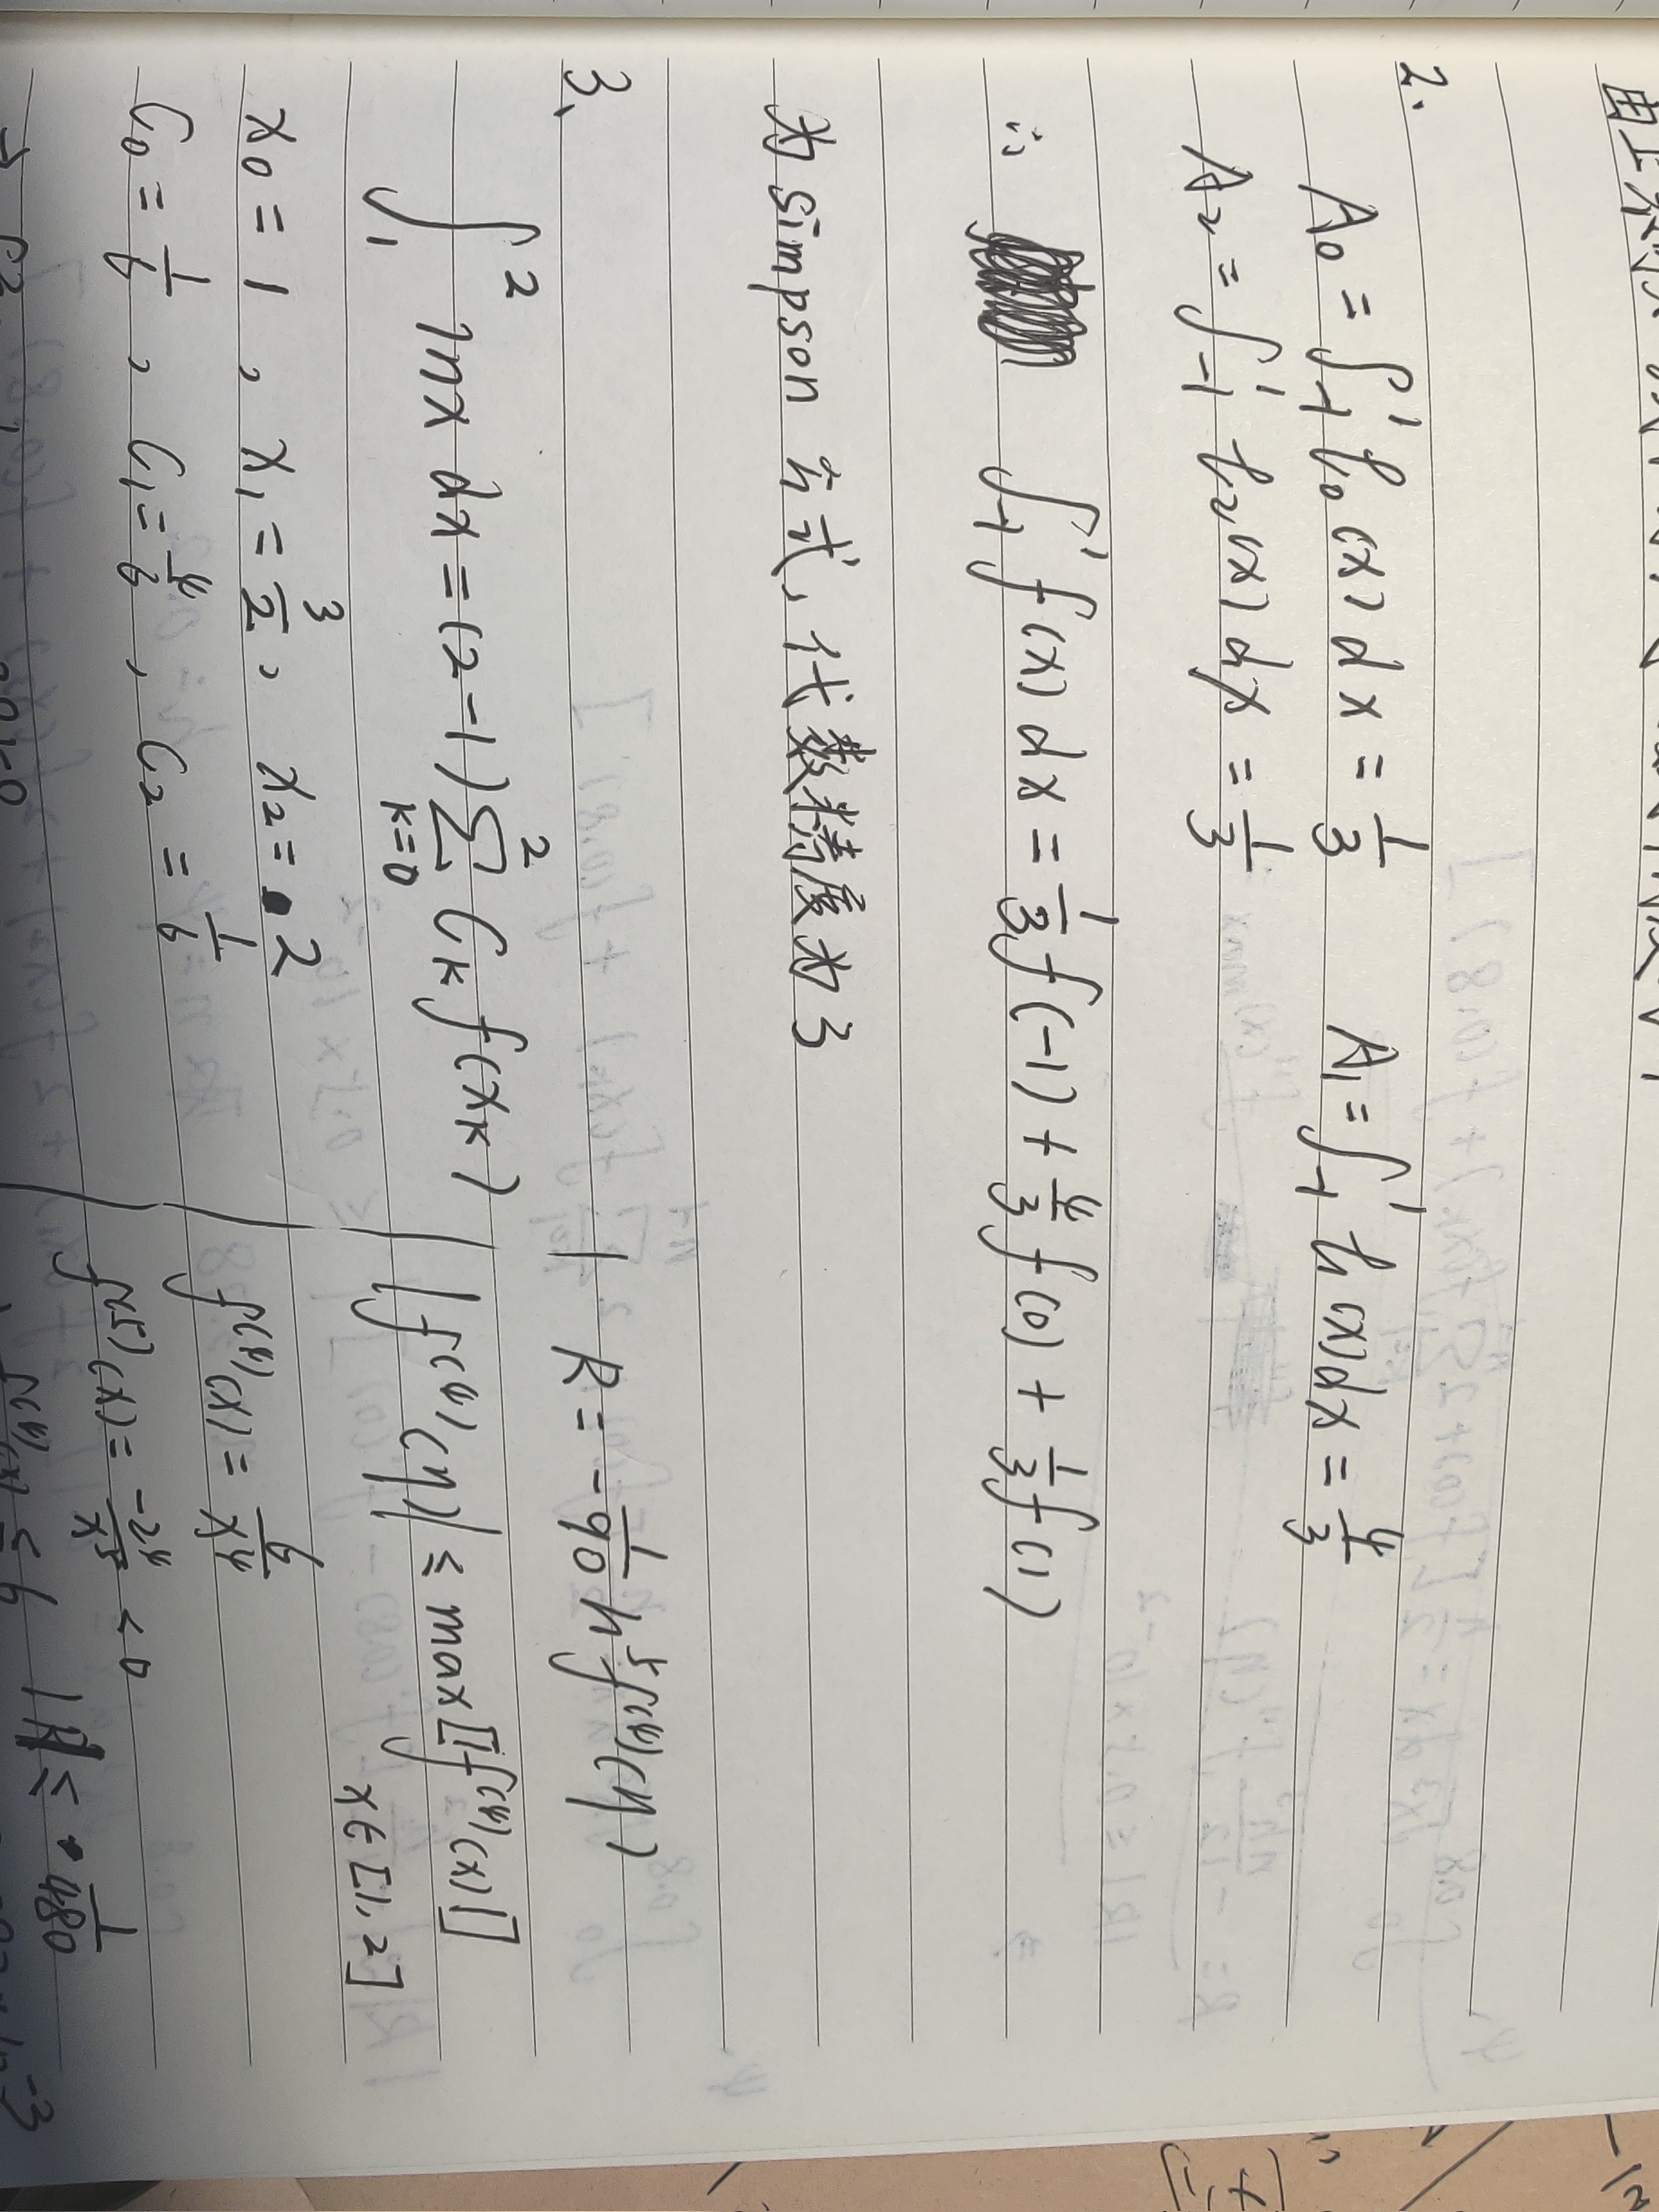 2、
A₀ = ∫₋₁¹ l₀(x) dx = 1/3    A₁ = ∫₋₁¹ l₁(x) dx = 4/3
A₂ = ∫₋₁¹ l₂(x) dx = 1/3
∴ ∫₋₁¹ f(x) dx = 1/3 f(-1) + 4/3 f(0) + 1/3 f(1)
为 simpson 公式, 代数精度为 3
3、
∫₁² lnx dx = (2-1) ∑_{k=0}^{2} C_k f(x_k)
x₀ = 1 , x₁ = 3/2 , x₂ = 2
C₀ = 1/6 , C₁ = 4/6 , C₂ = 1/6
R = -1/90 h⁵ f⁽⁴⁾(η)
|f⁽⁴⁾(η)| ≤ max[|f⁽⁴⁾(x)|]
x∈[1,2]
f⁽⁴⁾(x) = 6/x⁴
f⁽⁵⁾(x) = -24/x⁵ < 0
f⁽⁴⁾(x) ≤ 6    |R| ≤ 1/480